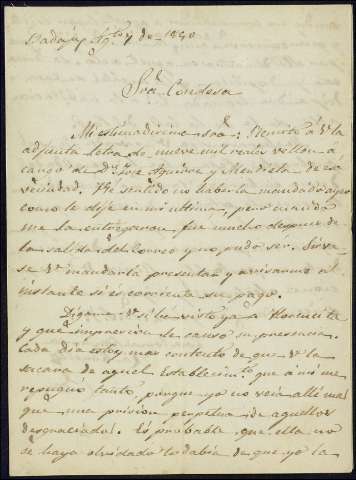 Badajoz Agto 7 de 1850
Sra Condesa
Mi estimadisima sra: Remito á Va la
adjunta letra de nueve mil reales vellon á
cargo de Dn Jose Aguirre y Mendieta de esa
vecindad. He sentido no haberla mandado ayer
como le dije en mi ultima, pero cuando
me la entregaron fue mucho despues de
la salida del correo y no pudo ser. Sirva-
se Va mandarla presentar y avisarme al
instante si és corriente su pago.
Digame Va si ha visto ya a
y que impresion le causo su presencia.
Cada dia estoy mas contento de que Va la
sacara de aquel Establecimto que á mi me
repugnó tanto, porque yo no veia alli mas
que una prision perpetua de aquellos
desgraciados. Es probable que ella no
se haya olvidado todabia de que yo la